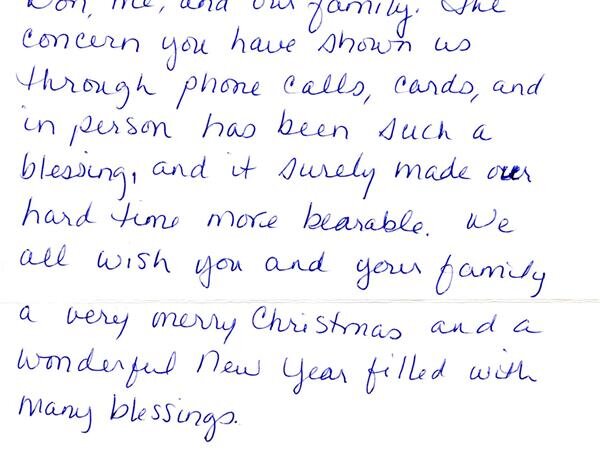 Don, me, and our family. The
concern you have shown us
through phone calls, cards, and
in person has been such a
blessing, and it surely made our
hard time more bearable. We
all wish you and your family
a very merry Christmas and a
wonderful New Year filled with
many blessings.